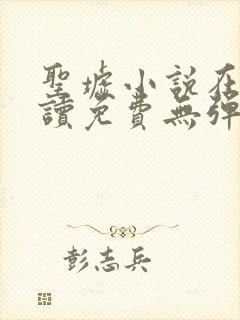 聖墟小說在
讀免費無彈
彭志兵